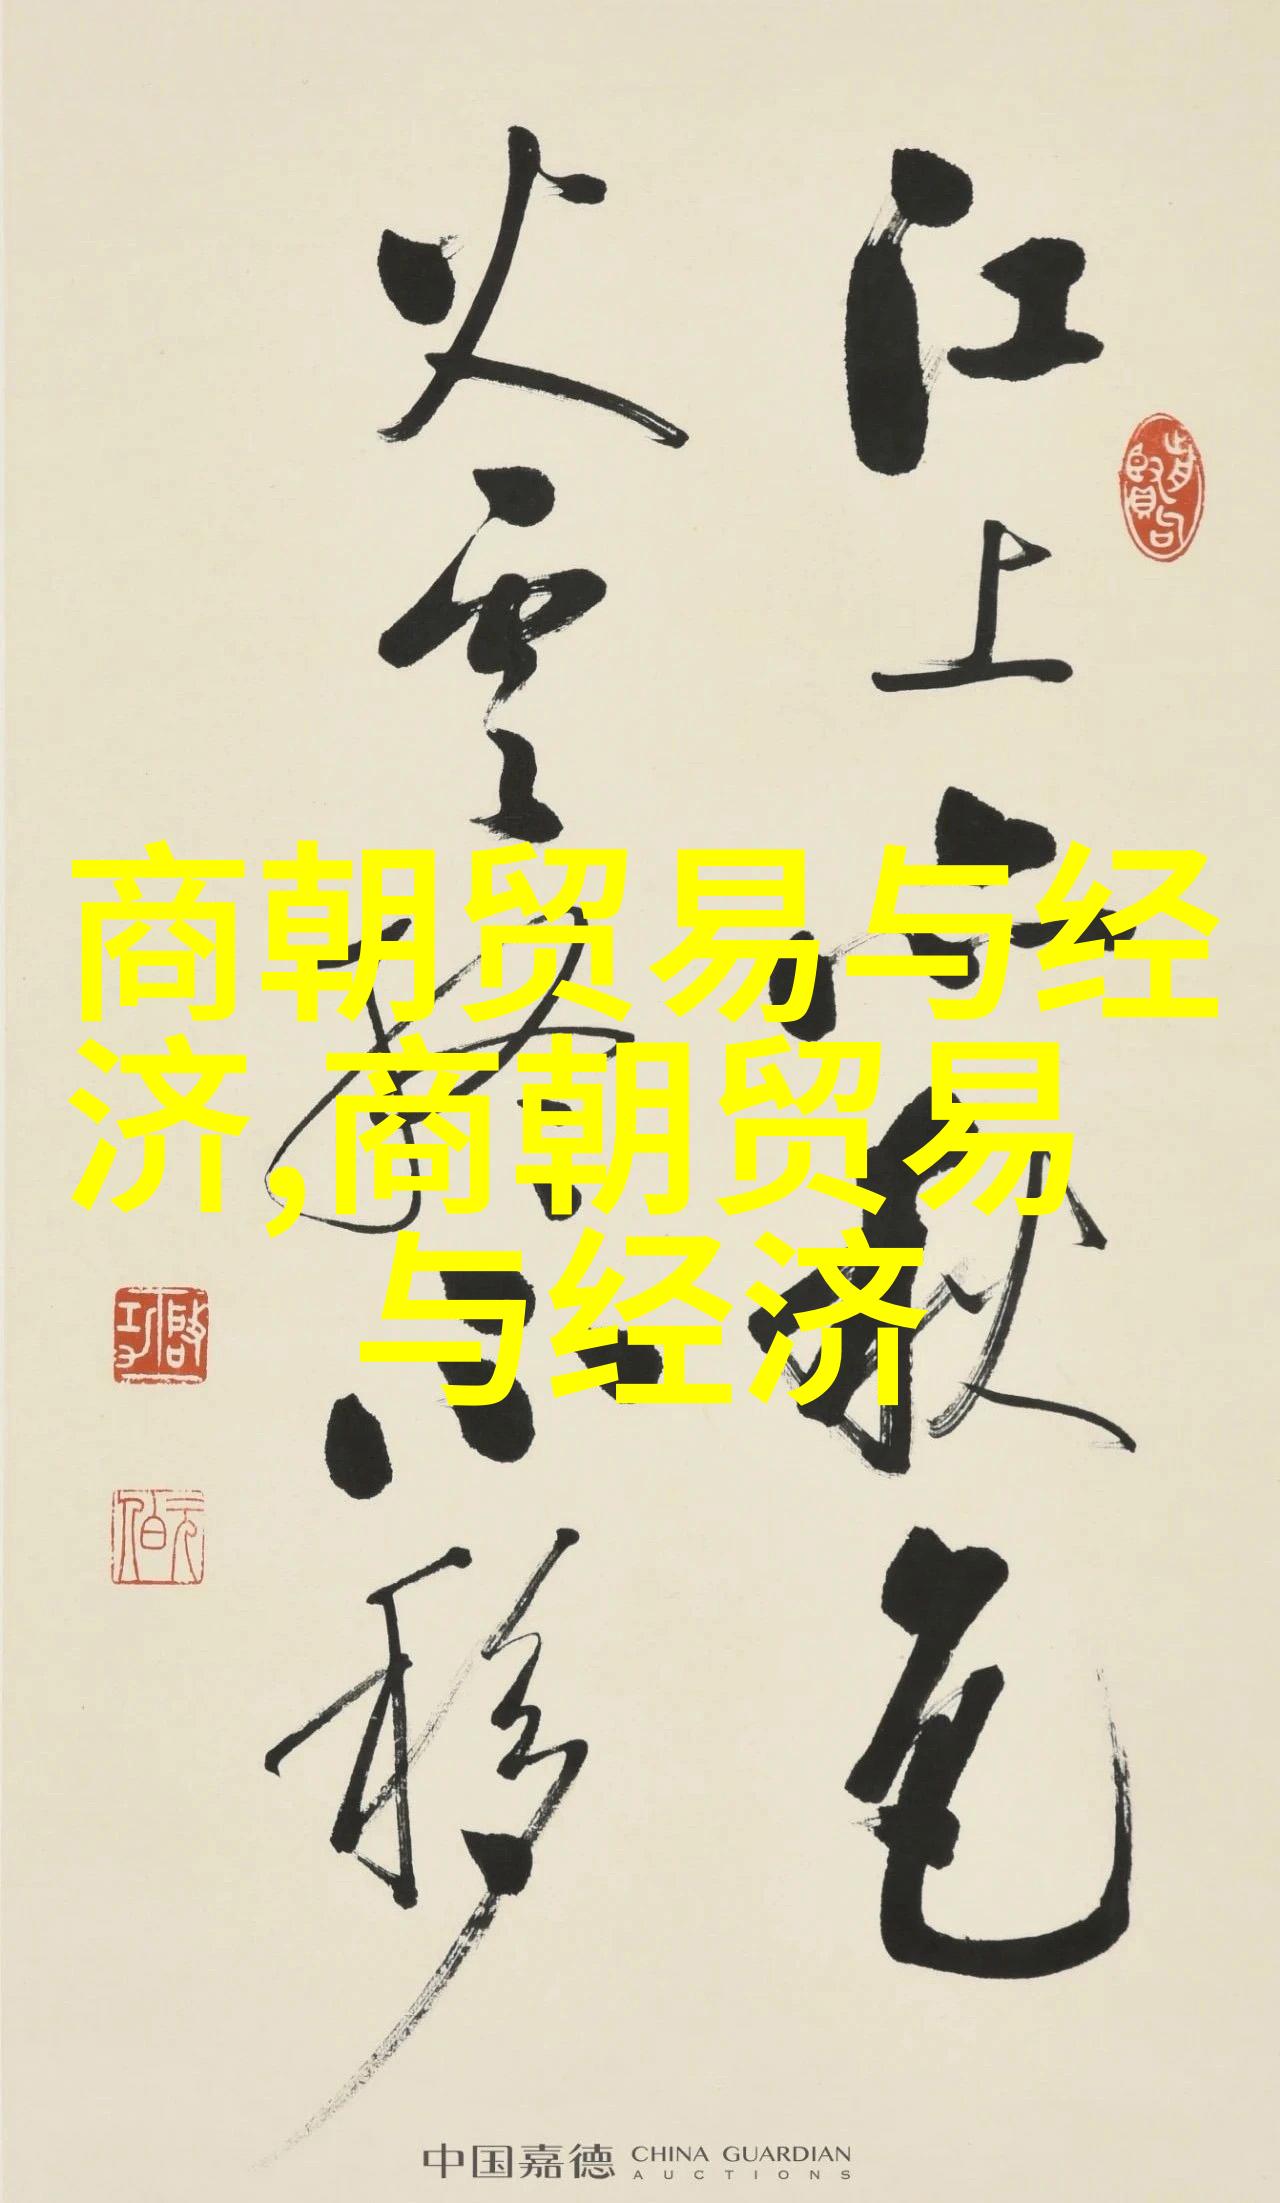 江上亦秋色
火雲終不移
啟功
元伯
商朝贸易与经
济,商朝贸易
与经济
中国嘉德 CHINA GUARDIAN
AUCTIONS